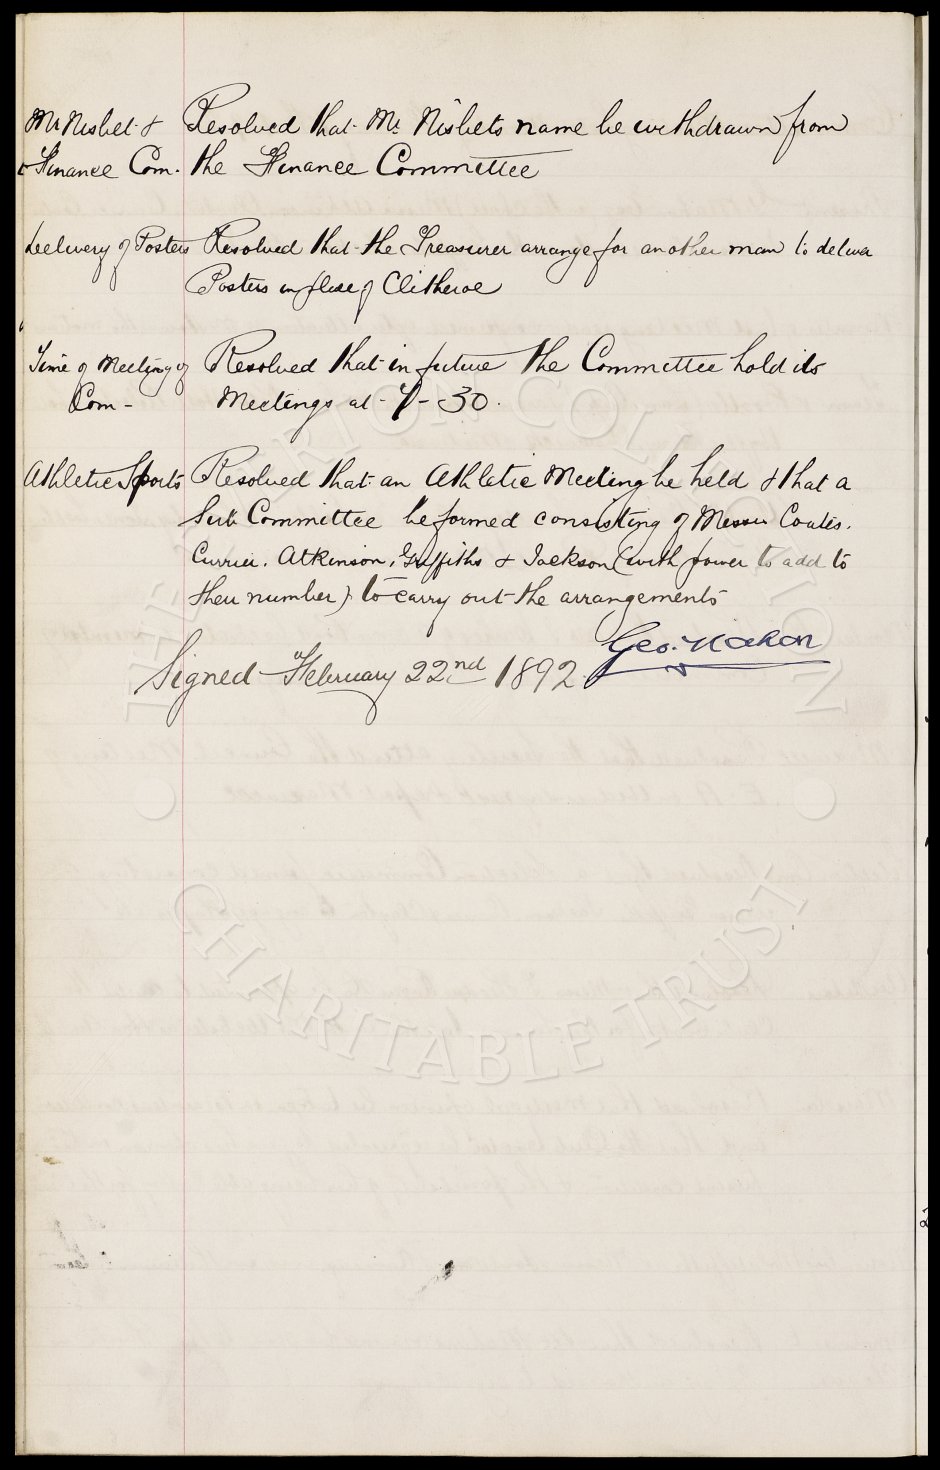 Mr Nisbet & Resolved that Mr Nisbets name be withdrawn from
Finance Com. the Finance Committee
Delivery of Posters Resolved that the Treasurer arrange for another man to deliver
Posters in place of Clitheroe
Time of Meeting of Resolved that in future the Committee hold its
Com - Meetings at 7-30.
Athletic Sports Resolved that an Athletic Meeting be held & that a
Sub Committee be formed consisting of Messrs Coates.
Currier. Atkinson, Griffiths & Jackson (with power to add to
their number) to carry out the arrangements
Geo. Mahon
Signed February 22nd 1892.
THE EVERTON COLLECTION
CHARITABLE TRUST